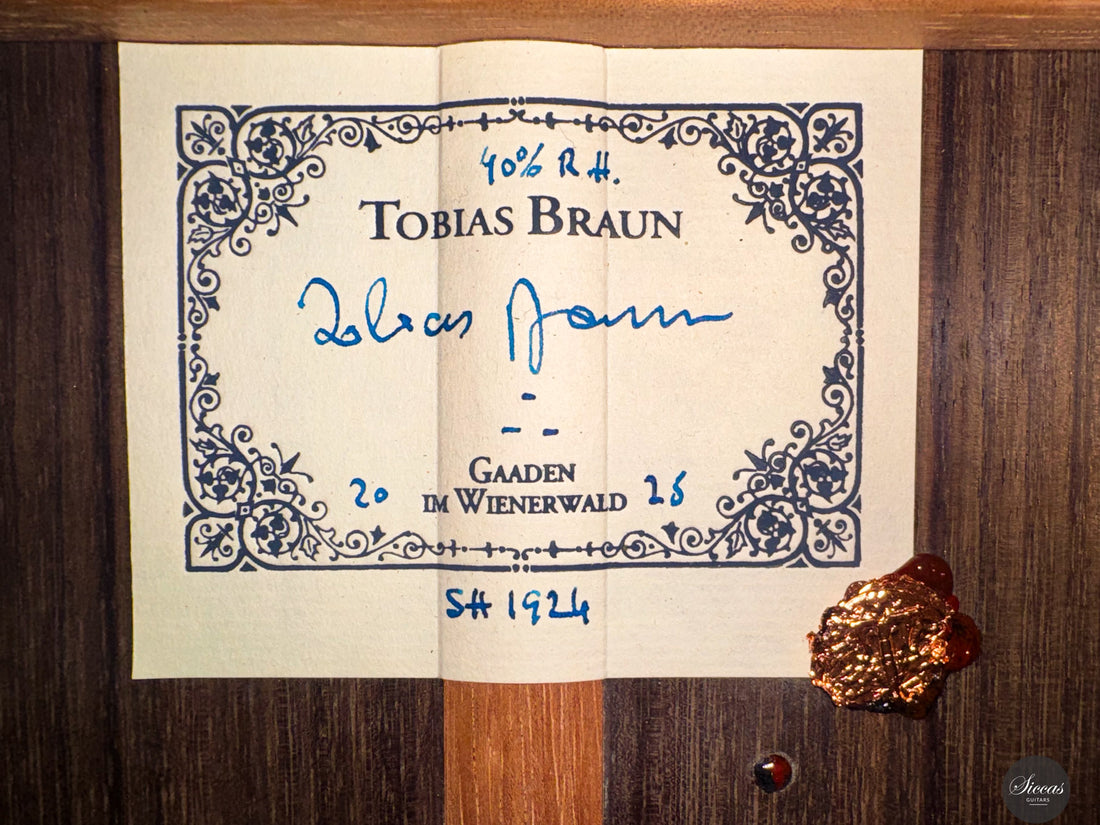 40% R.H.
TOBIAS BRAUN
Tobias Braun
GAADEN
20 IM WIENERWALD 25
SH 1924
Siccas
GUITARS